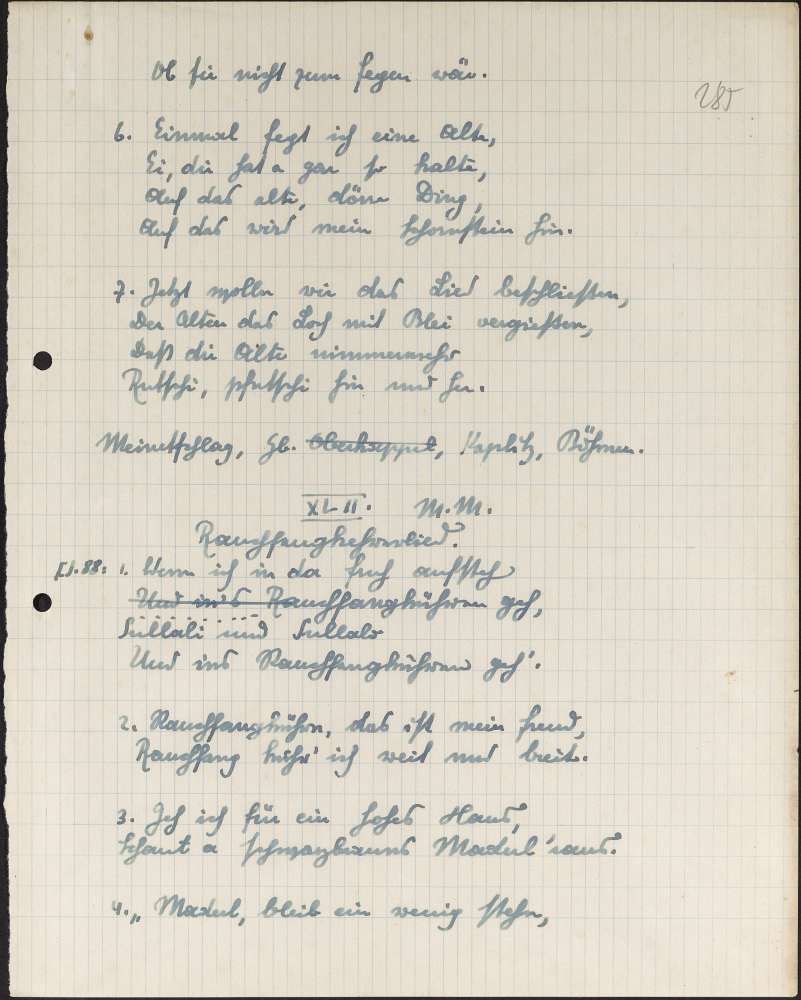 Ob sie nicht zum fegen wär.
285
6. Einmal fegt ich eine Alte,
Ei, die hat a gar so kalte,
Auf das alte, dörre Ding,
Auf das wird mein Schornstein hin.
7. Jetzt wolln wir das Lied beschließen,
Der Alten das Loch mit Blei vergießen,
Daß die Alte nimmermehr
Rutschi, pfutschi hin und her.
Meinetschlag, Gb. Oberhaippel, Kaplitz, Böhmen.
XLII. M.M.
Rauchfangkehrerlied.
1. Wenn ich in da fruh aufsteh
Und in's Rauchfangkühren geh,
Tullali und Tullalo
Und ins Rauchfangkühren geh'.
2. Rauchfangkühren, das ist mein Freud,
Rauchfang kühr' ich weit und breit.
3. Geh ich für ein hohes Haus,
Schaut a schwarzbrauns Madul 'raus.
4. „Madul, bleib ein wenig stehn,